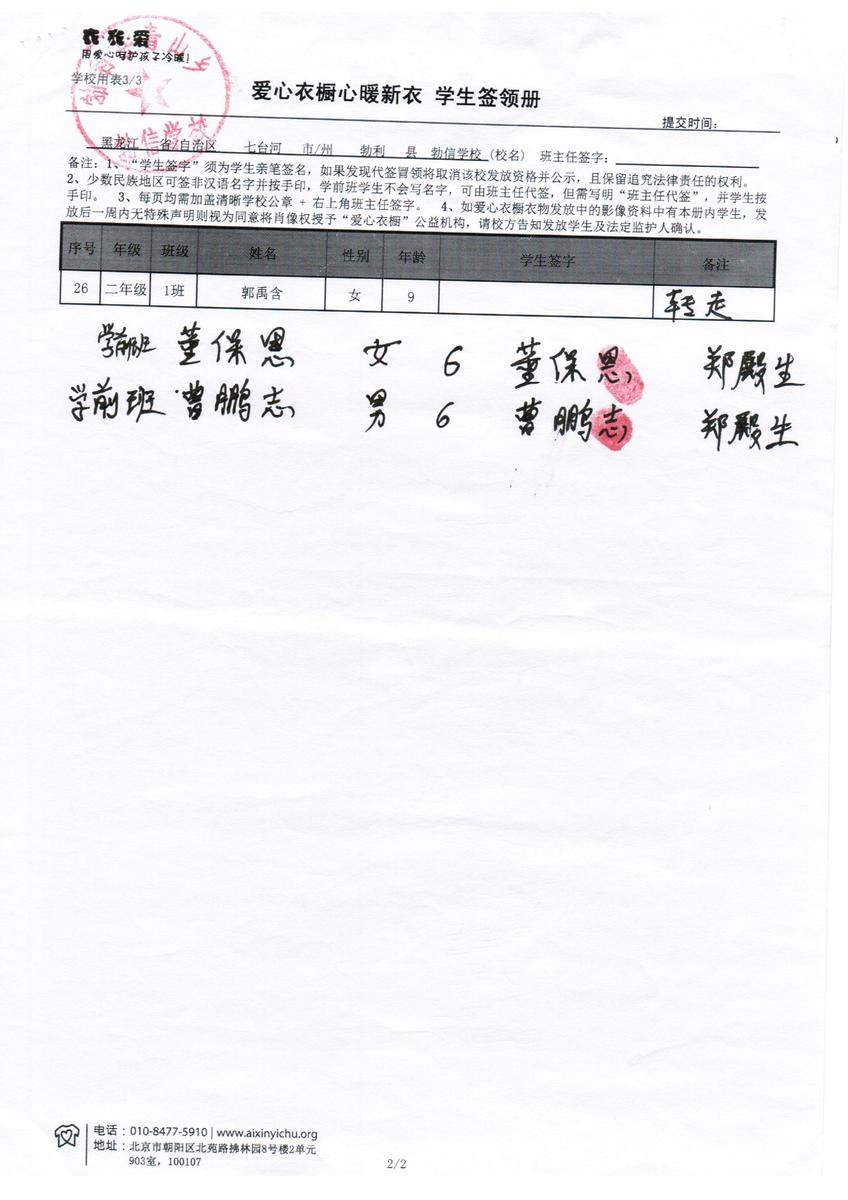 衣·衣·爱
用爱心呵护孩子冷暖!
学校用表3/3
勃信学校
爱心衣橱心暖新衣 学生签领册
提交时间:
黑龙江 省/自治区 七台河 市/州 勃利 县 勃信学校 (校名) 班主任签字:
备注: 1、“学生签字”须为学生亲笔签名，如果发现代签冒领将取消该校发放资格并公示，且保留追究法律责任的权利。
2、少数民族地区可签非汉语名字并按手印，学前班学生不会写名字，可由班主任代签，但需写明“班主任代签”，并学生按
手印。 3、每页均需加盖清晰学校公章 + 右上角班主任签字。 4、如爱心衣橱衣物发放中的影像资料中有本册内学生，发
放后一周内无特殊声明则视为同意将肖像权授予“爱心衣橱”公益机构，请校方告知发放学生及法定监护人确认。
序号 年级 班级 姓名 性别 年龄 学生签字 备注
26 二年级 1班 郭禹含 女 9 转走
学前班 董保恩 女 6 董保恩 郑殿生
学前班 曹鹏志 男 6 曹鹏志 郑殿生
电话：010-8477-5910 | www.aixinyichu.org
地址：北京市朝阳区北苑路拂林园8号楼2单元
903室，100107
2/2